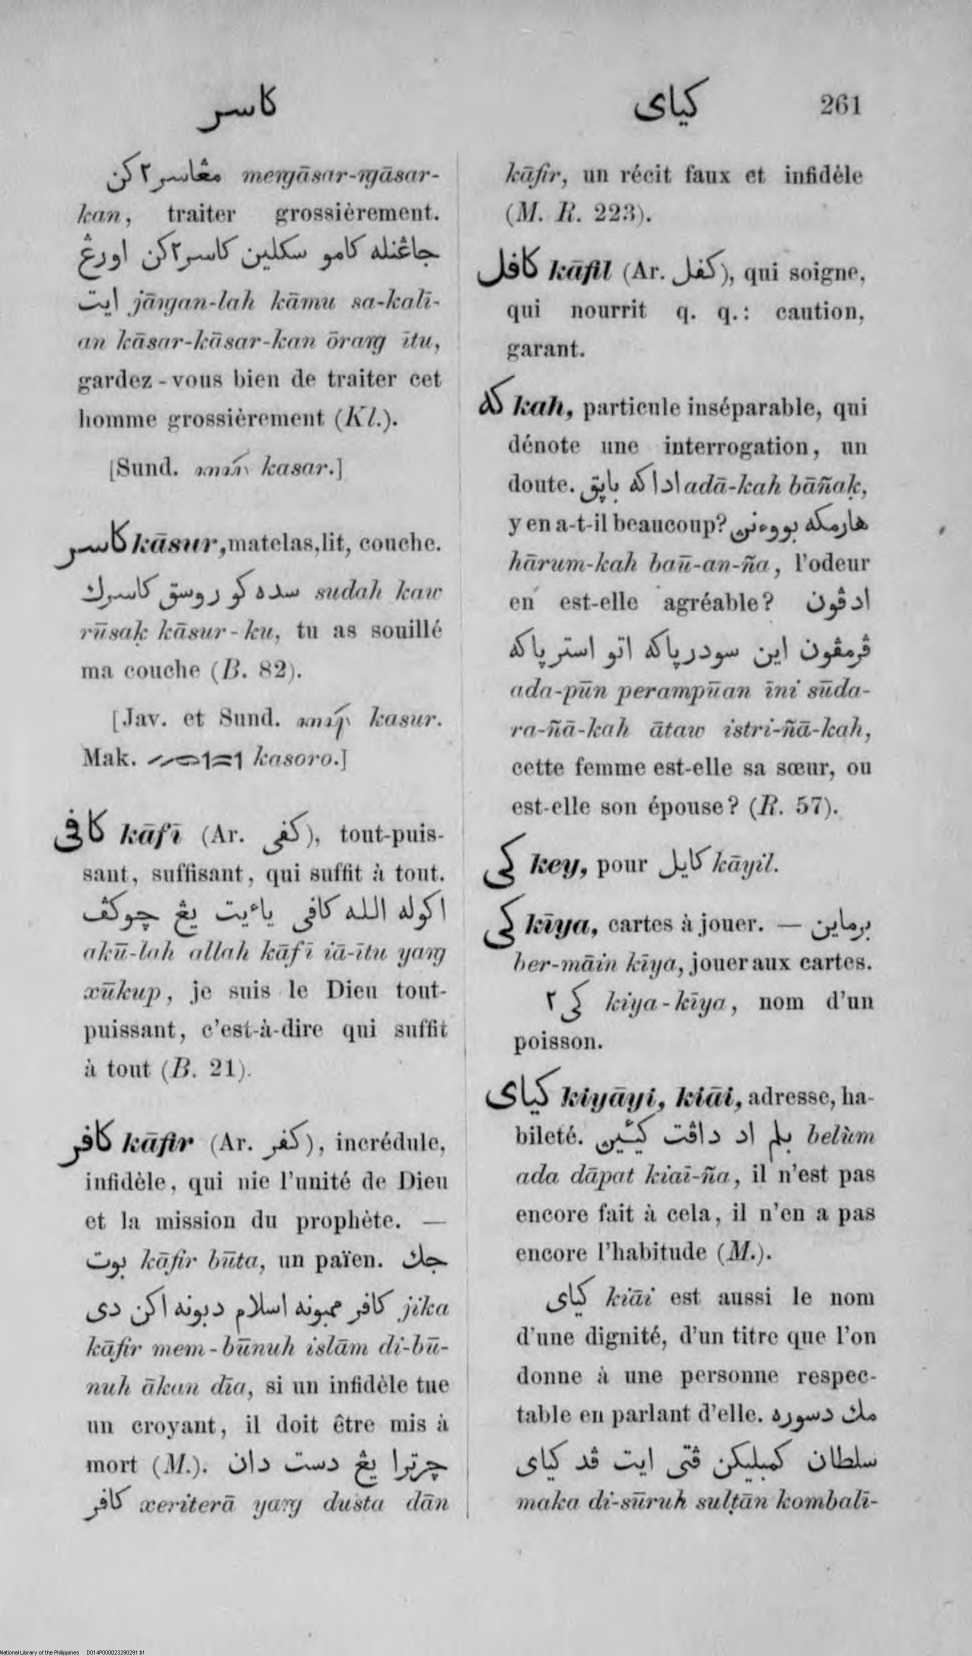 كاسر
كياى 261
مڠاسر٢كن meṅgāsar-ṅgāsar-
kan, traiter grossièrement.
جاڠنله كامو سكلين كاسر٢كن اورڠ
ايت jāṅgan-lah kāmu sa-kalī-
an kāsar-kāsar-kan ōraṅg ītu,
gardez-vous bien de traiter cet
homme grossièrement (Kl.).
[Sund. kasar.]
كاسر kāsur, matelas, lit, couche.
سده كو روسق كاسرك sudah kaw
rūsaḳ kāsur-ku, tu as souillé
ma couche (B. 82).
[Jav. et Sund. kasur.
Mak. kasoro.]
كافى kāfī (Ar. كفى), tout-puis-
sant, suffisant, qui suffit à tout.
اكوله الله كافى ياءيت يڠ چوكڤ
akū-lah allah kāfī iā-ītu yaṅg
xūkup, je suis le Dieu tout-
puissant, c'est-à-dire qui suffit
à tout (B. 21).
كافر kāfir (Ar. كفر), incrédule,
infidèle, qui nie l'unité de Dieu
et la mission du prophète. —
بوت kāfir būta, un païen. جك
كافر ممبونه اسلام دبونه اكن دى jika
kāfir mem-būnuh islām di-bū-
nuh ākan dīa, si un infidèle tue
un croyant, il doit être mis à
mort (M.). چرترا يڠ دست دان
كافر xeriterā yaṅg dusta dān
kāfir, un récit faux et infidèle
(M. R. 223).
كافل kāfil (Ar. كفل), qui soigne,
qui nourrit q. q.: caution,
garant.
كه kah, particule inséparable, qui
dénote une interrogation, un
doute. اداكه باڽق adā-kah bāñaḳ,
y en a-t-il beaucoup? هارمكه بووءنڽ
hārum-kah baū-an-ña, l'odeur
en est-elle agréable? ادڤون
ڤرمڤون اين سودرڽاكه اتو استرڽاكه
ada-pūn perampūan īni sūda-
ra-ñā-kah ātaw istri-ñā-kah,
cette femme est-elle sa sœur, ou
est-elle son épouse? (R. 57).
كى key, pour كايل kāyil.
كى kīya, cartes à jouer. — برماين
ber-māin kīya, jouer aux cartes.
كى ٢ kiya-kīya, nom d'un
poisson.
كياى kiyāyi, kiāi, adresse, ha-
bileté. بلم اد داڤت كيئيڽ belùm
ada dāpat kiaī-ña, il n'est pas
encore fait à cela, il n'en a pas
encore l'habitude (M.).
كياى kiāi est aussi le nom
d'une dignité, d'un titre que l'on
donne à une personne respec-
table en parlant d'elle. مك دسوره
سلطان كمبليكن ڤتى ايت ڤد كياى
maka di-sūruh sulṭān kombalī-
National Library of the Philippines